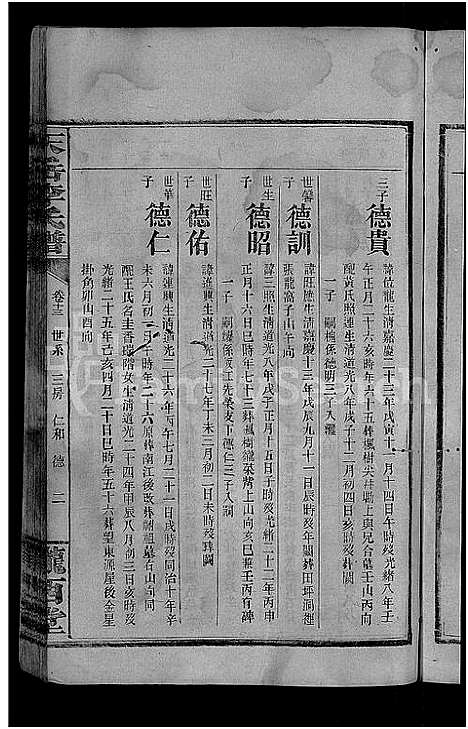 三子 德貴
諱位龍生清嘉慶二十三年戊寅十一月十四日午時歿光緒八年壬
午正月二十六亥時年六十五葬楓樹尖井塅上與兄合墓壬山丙向
配黃氏賜蓮生清道光八年戊子十二月初四日亥時歿葬闕
一子 嗣 係德明三子入繼
世馨子 德訓
諱旺 生清嘉慶十三年戊辰九月十一日辰時歿年闕葬田坪洞逕
張龍窩子山午向
世生子 德昭
諱三賜生清道光八年戊子正月十五日子時歿光緒二十二年丙申
正月十六日戌時年七十二葬楓樹 菜背上山向亥巳兼壬丙有碑
一子 嗣
世旺子 德佑
諱進興生清道光二十七年丁未三月初二日未時歿葬闕
世華子 德仁
諱連興生清道光二十六年丙午七月二十一日戌時歿同治十年辛
未六月初一日午時年二十六原葬南江後改葬嗣祖墓右山向同
配王氏名圭香 階女生清道光二十四年甲辰八月初三日亥時歿
光緒二十五年己亥四月二十日巳時年五十六葬望東源屋後金星
掛角卯山酉向
卷十三 世系 三房 仁和 德 二
隴西堂